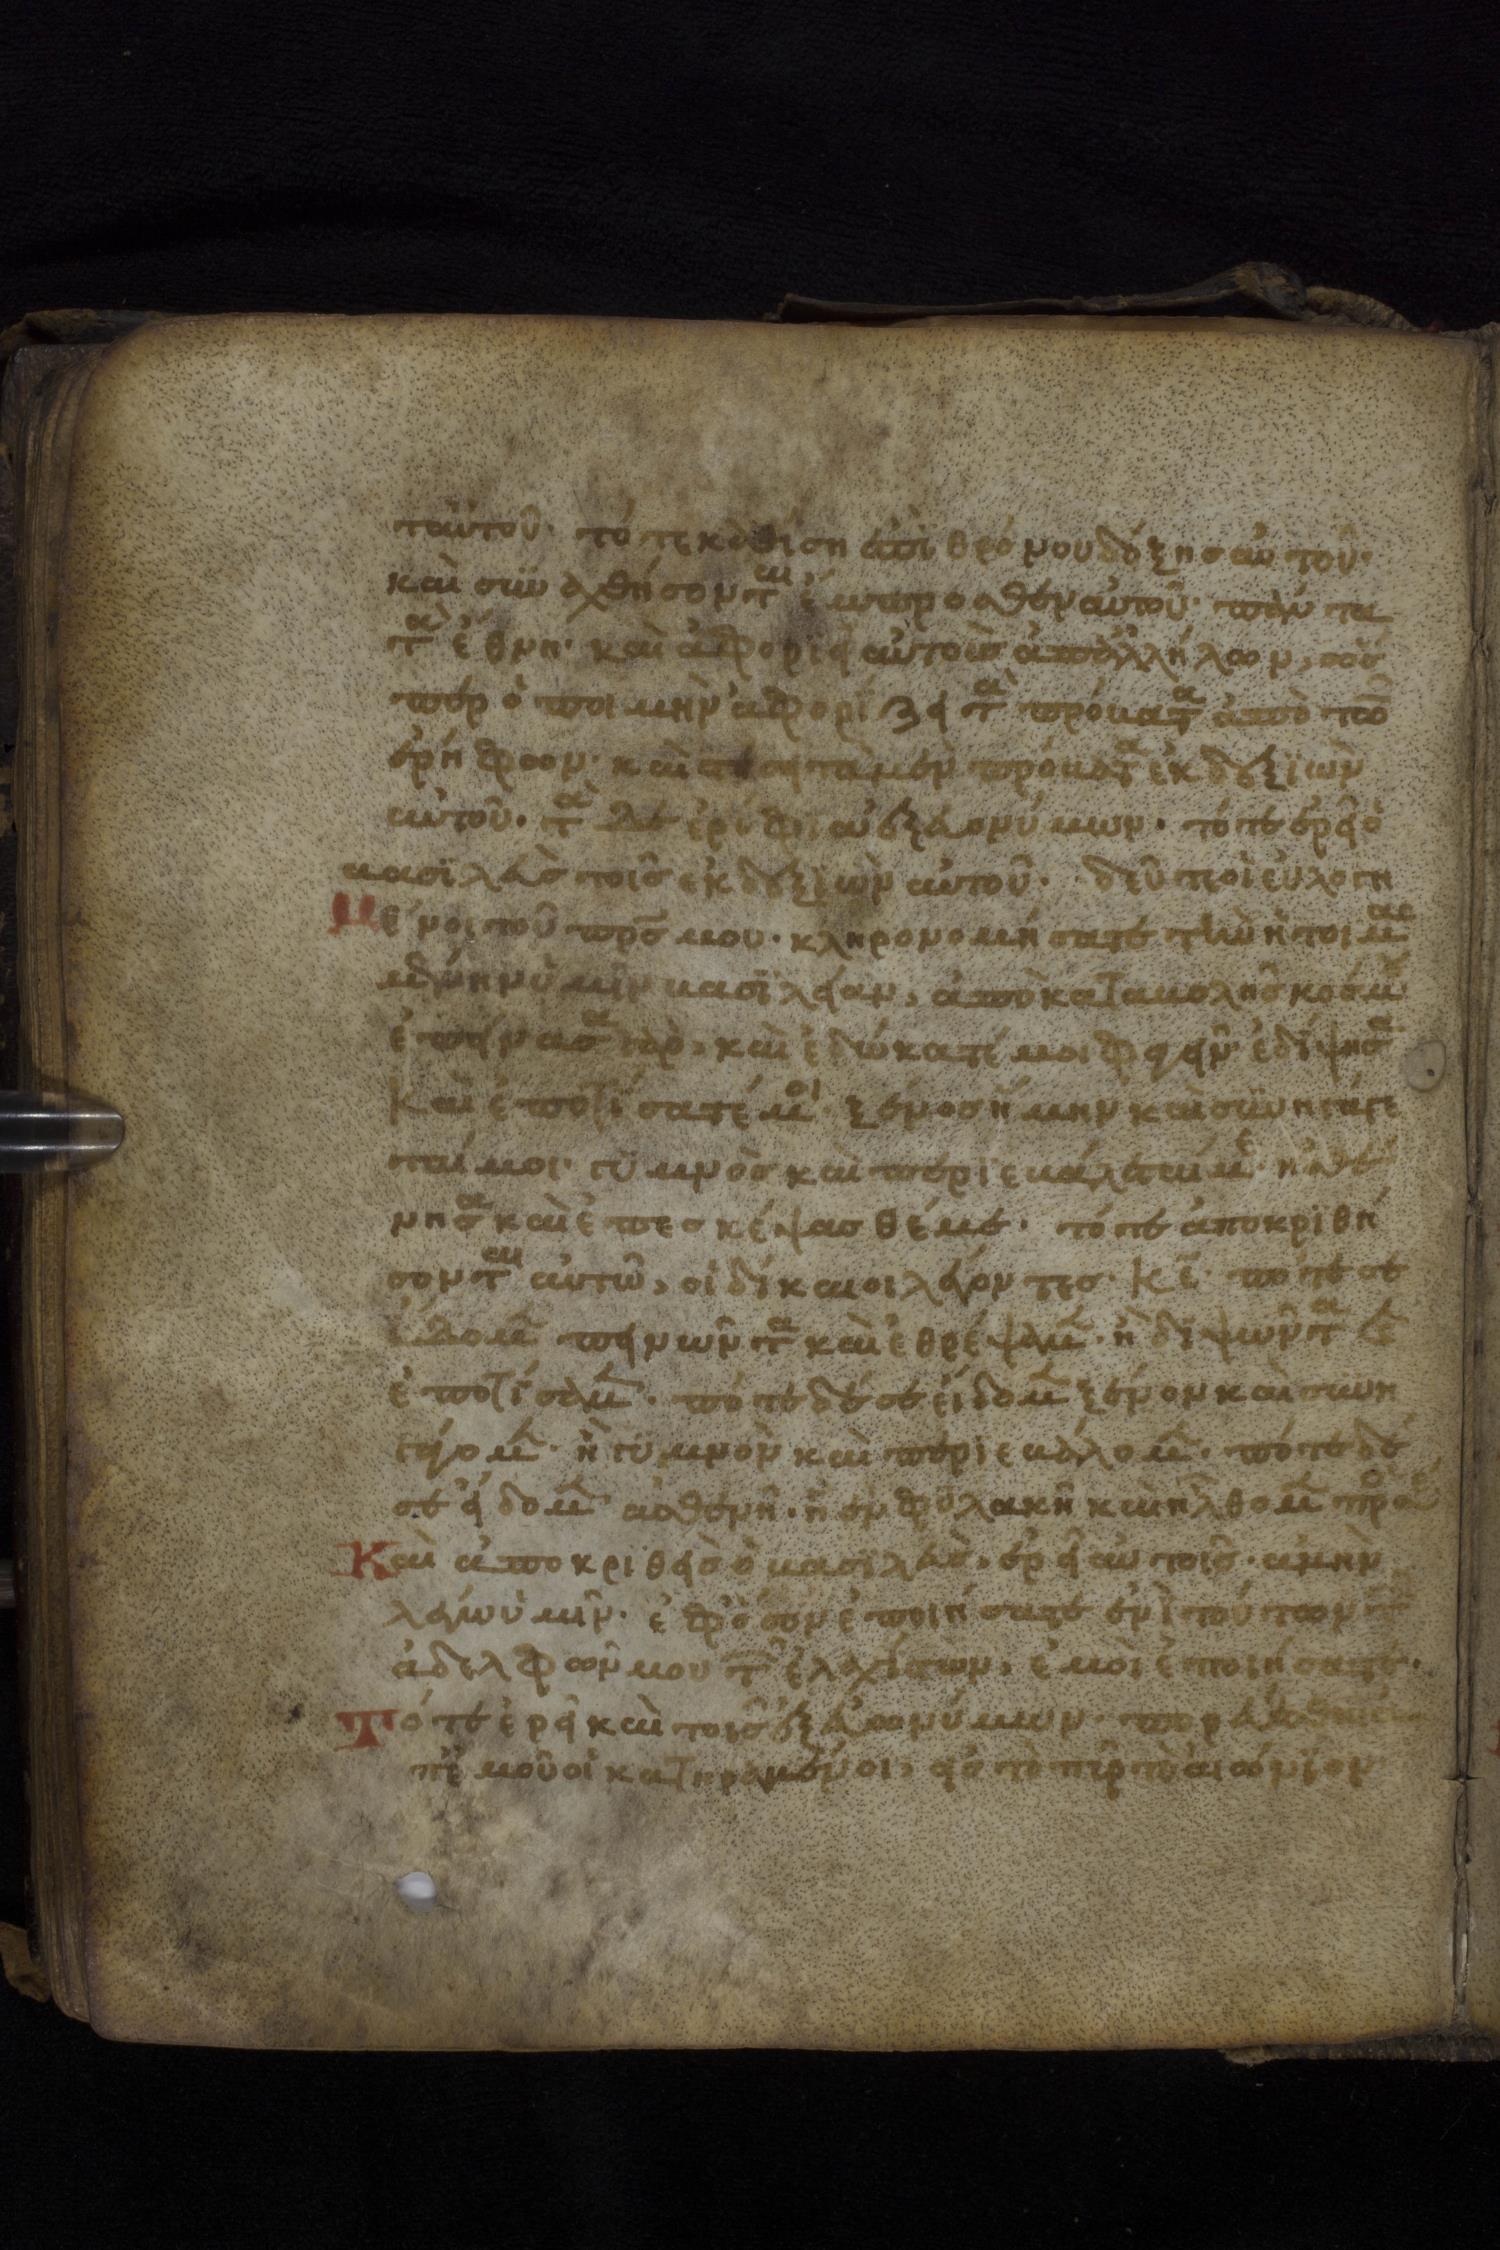 τ αὐτοῦ· τότε καθίση ἐπὶ θρόνου δόξης αὐτοῦ·
καὶ συναχθήσονται ἔμπροσθεν αὐτοῦ· πάντα
τὰ ἔθνη· καὶ ἀφοριεῖ αὐτοὺς ἀπ' ἀλλήλων, ὥσ
περ ὁ ποιμὴν ἀφορίζει τὰ πρόβατα ἀπὸ τῶ
ἐρήφων· καὶ στήσει τὰ μὲν πρόβατα ἐκ δεξιῶν
αὐτοῦ· τὰ δὲ ἐρίφια ἐξ εὐωνύμων· τότε ἐρεῖ ὁ
βασιλεὺς τοῖς ἐκ δεξιῶν αὐτοῦ· δεῦτε οἱ εὐλογη
μένοι τοῦ πρς μου· κληρονομήσατε τὴν ἡτοιμα
μένην ὑμῖν βασιλείαν, ἀπὸ καταβολῆς κόσμου
ἐπείνασα γὰρ, καὶ ἐδώκατέ μοι φαγεῖν· ἐδίψησα
καὶ ἐποτίσατέ μοι· ξένος ἤμην καὶ συνηγάγε
τέ μοι· γυμνὸς καὶ περιεβάλετέ με· ἠσθέ
νησα καὶ ἐπεσκέψασθέ με· τότε ἀποκριθή
σονται αὐτῶ, οἱ δίκαιοι λέγοντες· κε· πότε σὲ
εἴδομεν πεινῶντα καὶ ἐθρέψαμεν· ἢ διψῶντα καὶ
ἐποτίσαμεν· πότε δέ σε εἴδομεν ξένον καὶ συνη
γάγομεν· ἢ γυμνὸν καὶ περιεβάλομεν· πότε δέ
σε εἴδομεν ἀσθενῆ· ἢ ἐν φυλακῆ καὶ ἤλθομεν πρός σε
Καὶ ἀποκριθεὶς ὁ βασιλεὺς, ἐρεῖ αὐτοῖς· ἀμὴν
λέγω ὑμῖν· ἐφ' ὅσον ἐποιήσατε ἑνὶ τούτων τῶν
ἀδελφῶν μου τῶν ἐλαχίστων, ἐμοὶ ἐποιήσατε·
Τότε ἐρεῖ καὶ τοῖς ἐξ εὐωνύμων· πορεύεσθε ἀ
π' ἐμοῦ οἱ κατηραμένοι, εἰς τὸ πῦρ τὸ αἰώνιον